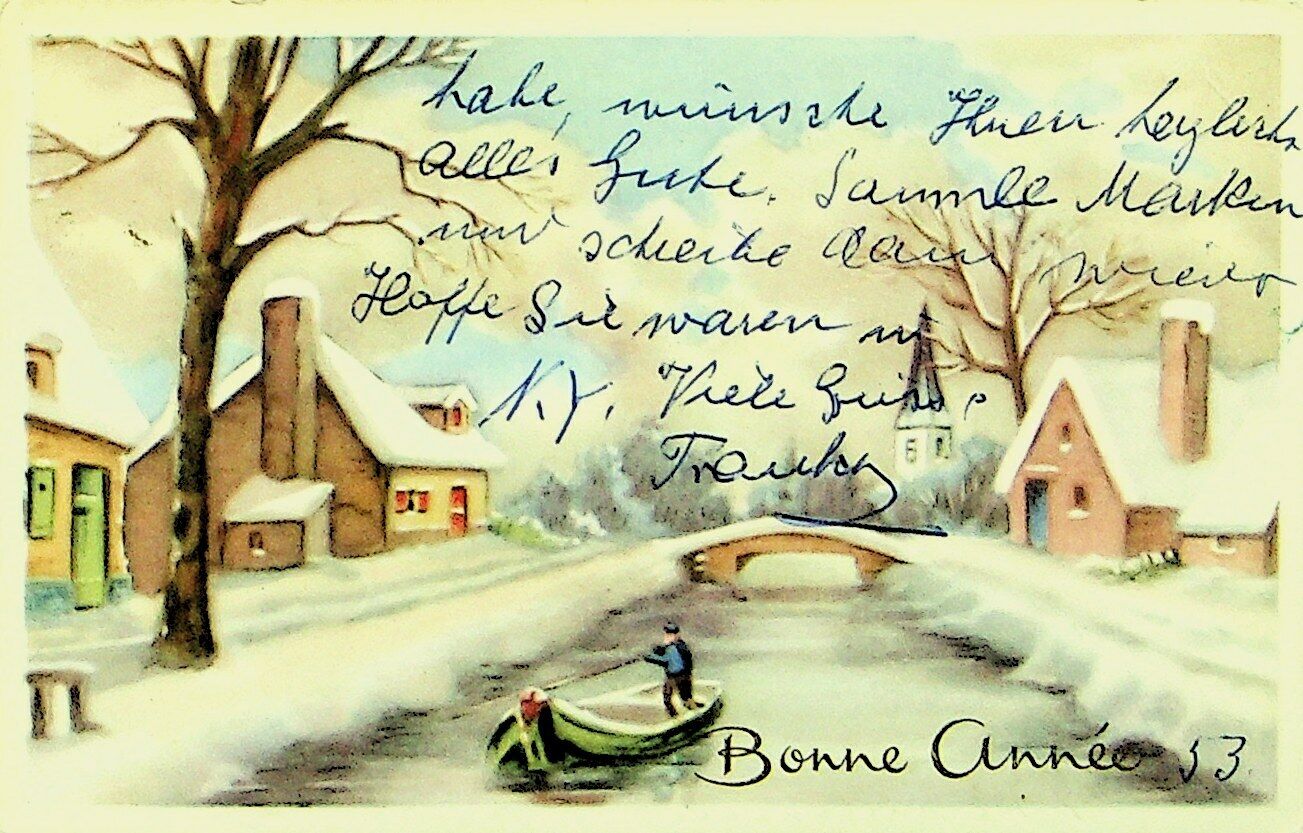 habe, wünsche Ihnen herzlichst
alles Gute. Sammle Marken
und schreibe dann wieder
Hoffe Sie waren in
N.Y. Viele Grüsse
Bonne Année 53